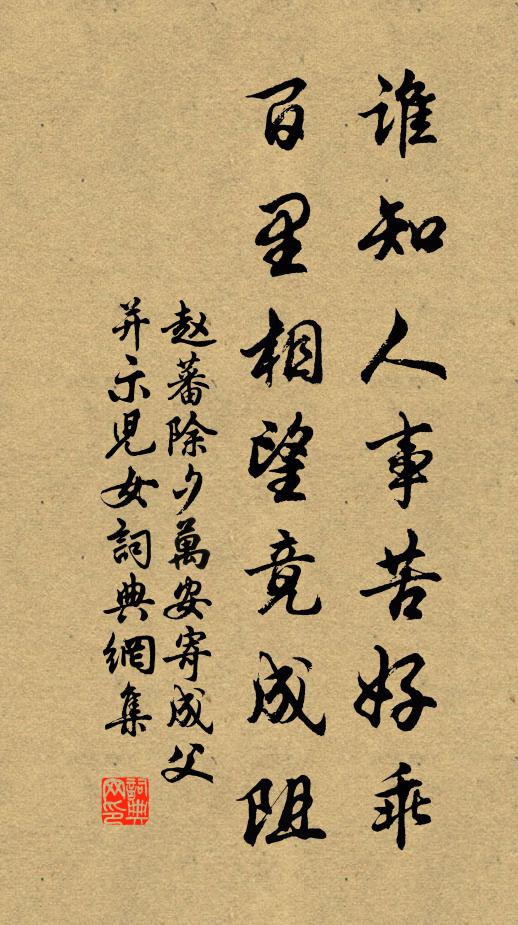 谁知人事苦好乖
百里相望竟成阻
赵蕃除夕萬安寄成父
并示児女詞典網集
詞典
网印